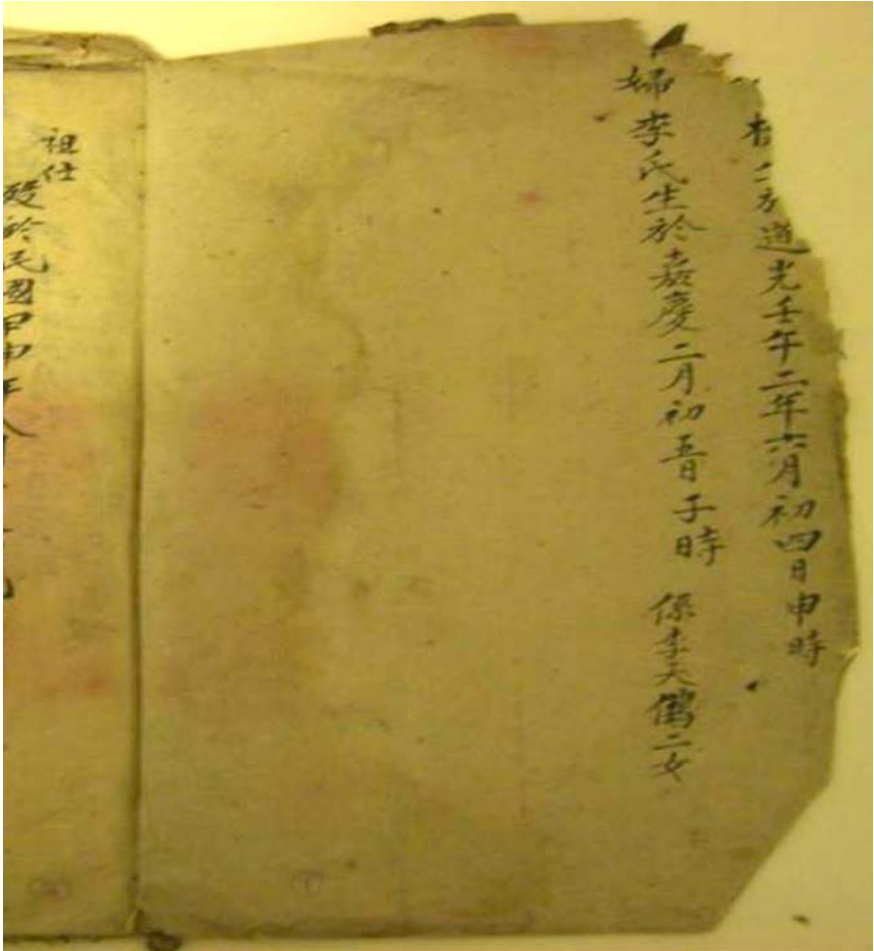 道光壬午二年六月初四日申時
婦李氏生於嘉慶二月初五日子時 係李天鶴二女
祖仕
殁於民國甲申年八月